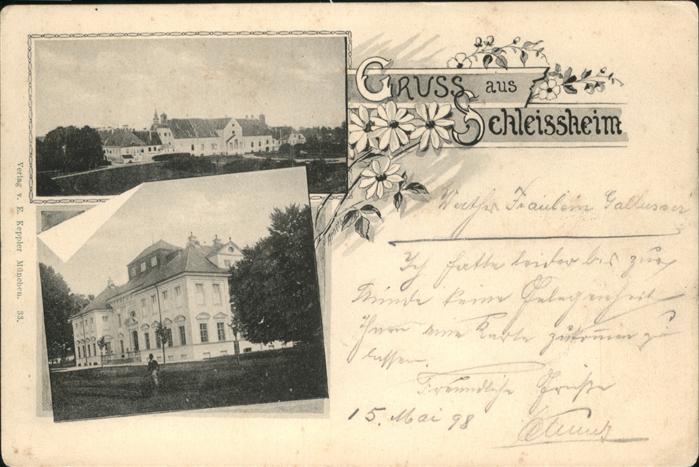 GRUSS aus
Schleissheim
Werthes Fräulein Gallusser
Ich hatte leider bis zur
Stunde keine Gelegenheit
Ihnen eine Karte zukommen zu
lassen.
Freundliche Grüsse
15. Mai 98
Verlag v. E. Keppler München. 33.